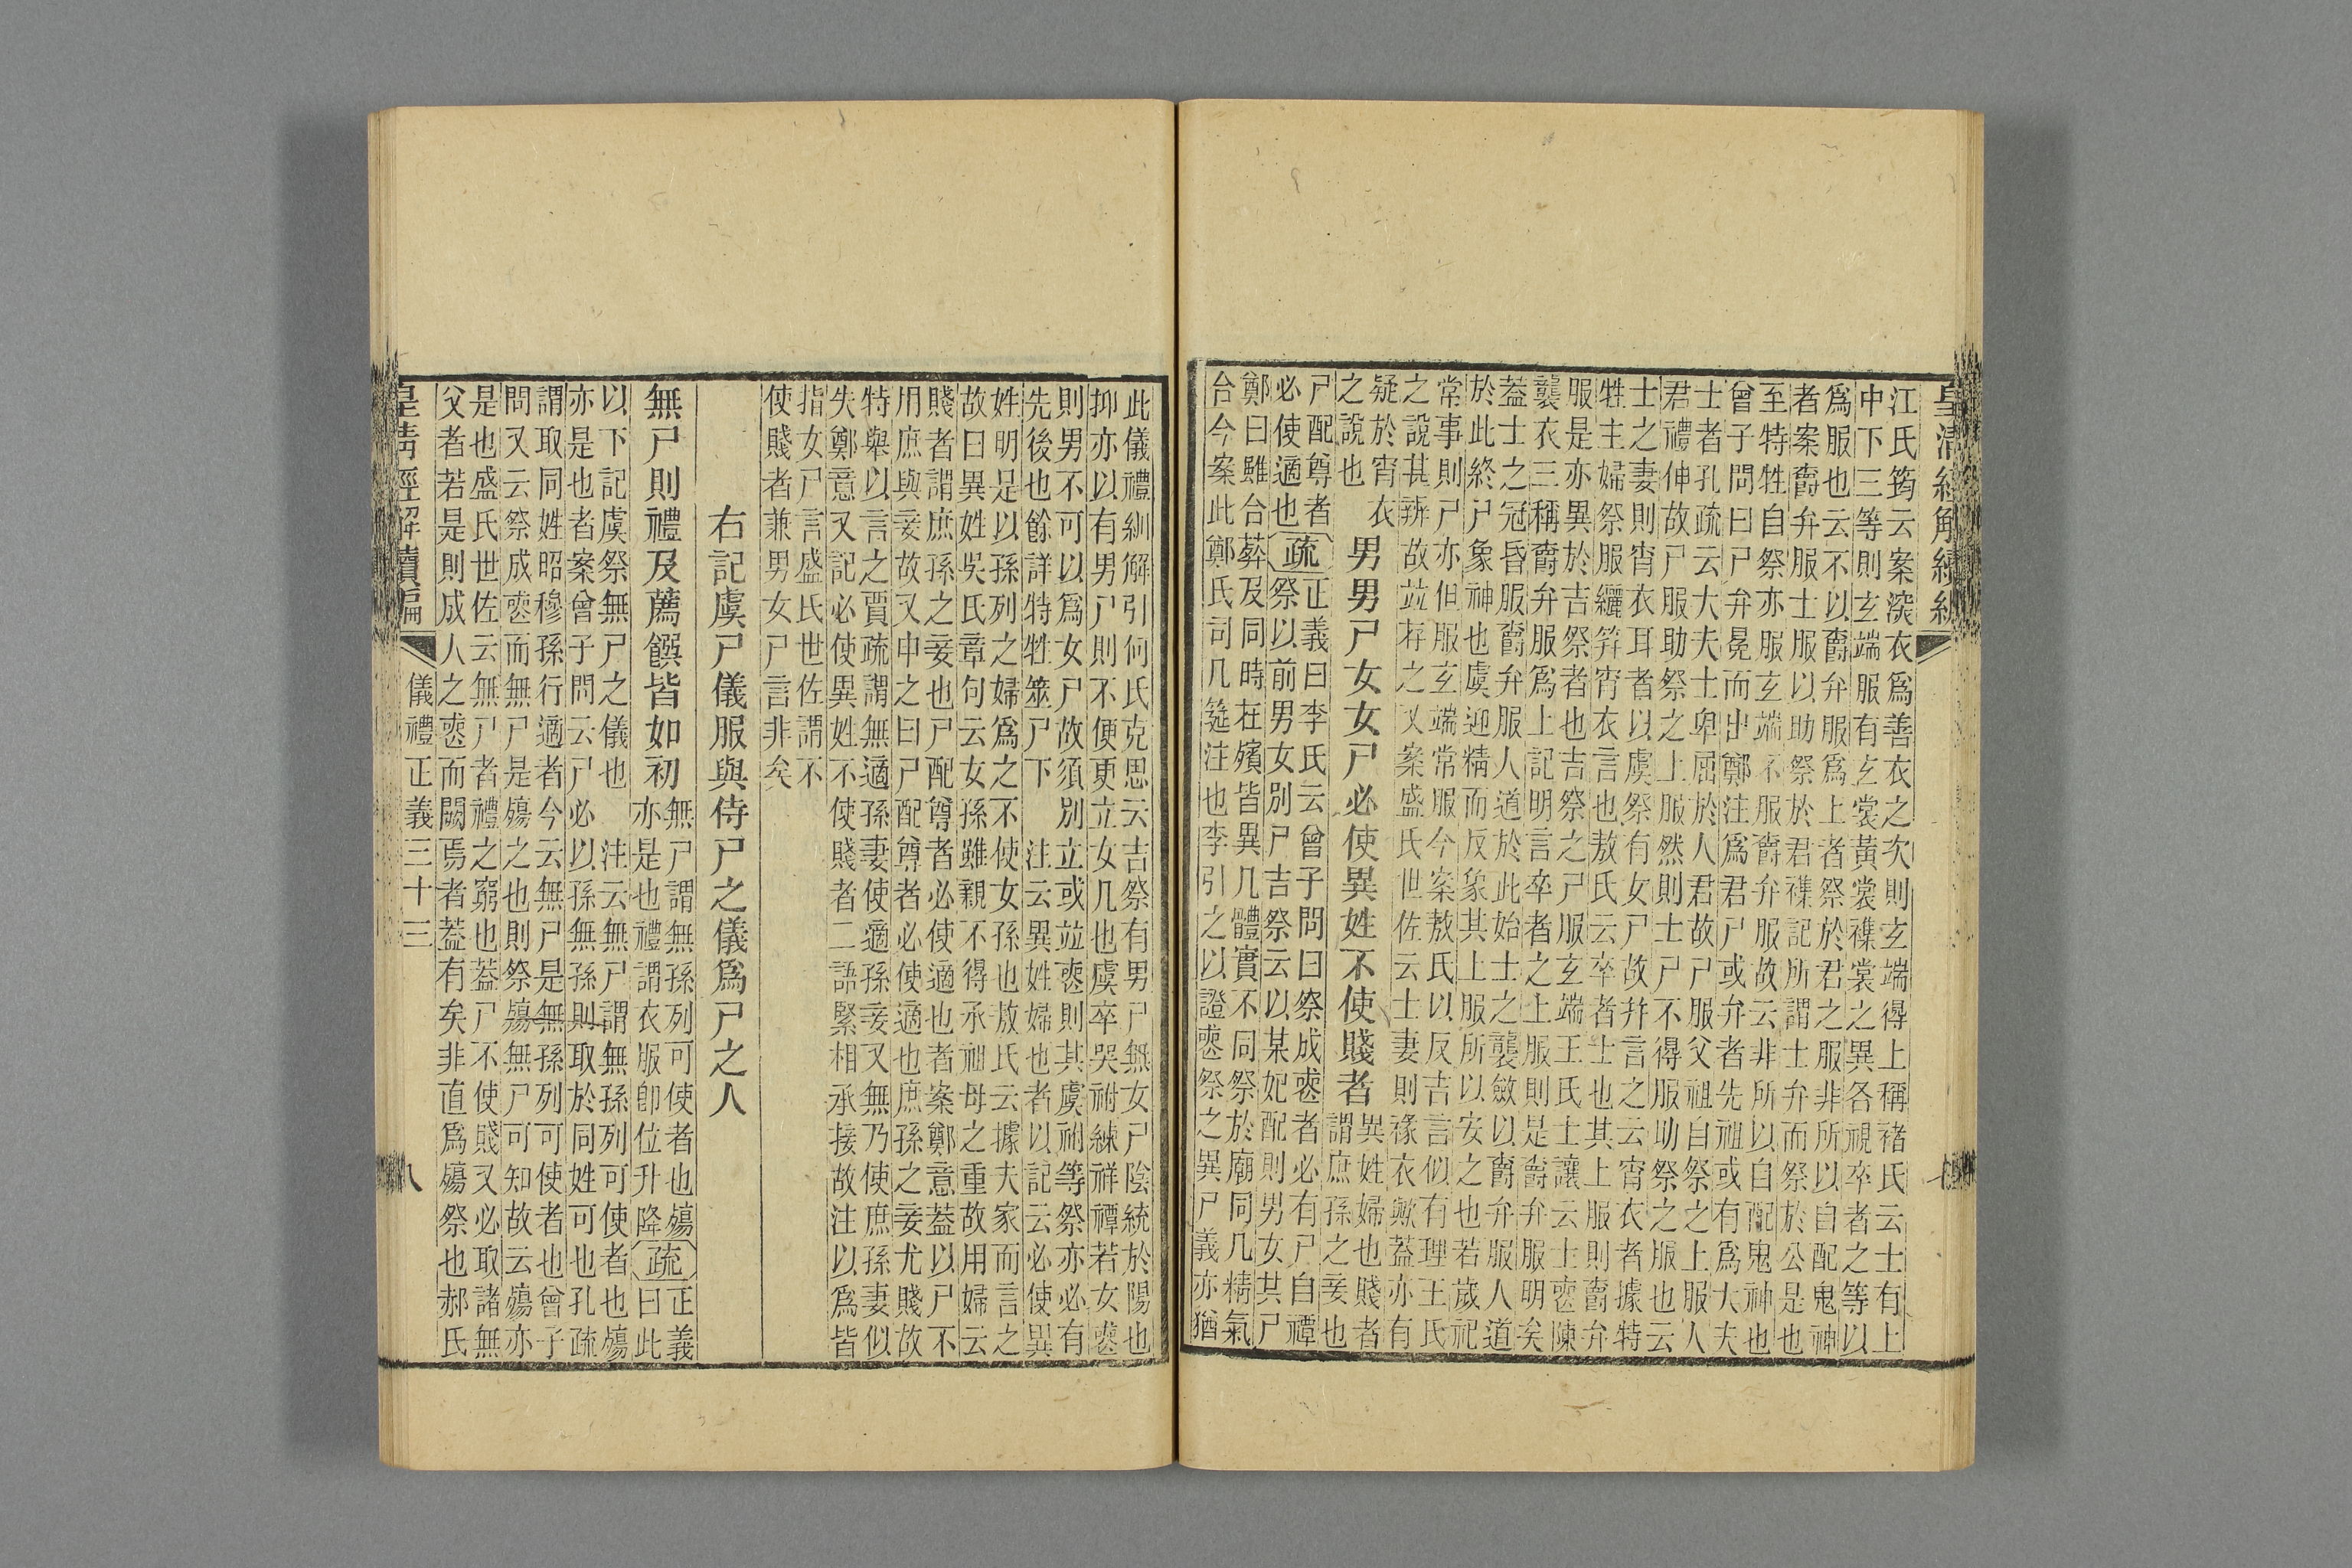 皇清經解續編
江氏筠云案深衣爲善衣之次則玄端得上稱褚氏云士有上
中下三等則玄端服有玄裳黃裳襍裳之異各視卒者之等以
爲服也云不以爵弁服爲上者祭於君之服非所以自配鬼神
者案爵弁服士服以助祭於君襍記所謂士弁而祭於公是也
至特牲自祭亦服玄端不服爵弁服故云非所以自配鬼神也
曾子問曰尸弁冕而出鄭注爲君尸或弁者先祖或有爲大夫
士者孔疏云大夫士卑屈於人君故尸服父祖自祭之上服人
君禮伸故尸服助祭之上服然則士尸不得服助祭之服也云
士之妻則宵衣耳者以虞祭有女尸故幷言之云宵衣者據特
牲主婦祭服纚笄宵衣言也敖氏云卒者士也其上服則爵弁
服是亦異於吉祭者也吉祭之尸服玄端王氏士讓云士喪陳
襲衣三稱爵弁服爲上記明言卒者之上服則是爵弁服明矣
葢士之冠昏服爵弁服人道於此始士之襲斂以爵弁服人道
於此終尸象神也虞迎精而反象其上服所以安之也若歲祀
常事則尸亦但服玄端常服今案敖氏以反吉言似有理王氏
之說甚辨故竝存之又案盛氏世佐云士妻則褖衣歟葢亦有
疑於宵衣
之說也
男男尸女女尸必使異姓不使賤者
異姓婦也賤者
謂庶孫之妾也
尸配尊者
必使適也
疏
正義曰李氏云曾子問曰祭成喪者必有尸自禫
祭以前男女別尸吉祭云以某妃配則男女共尸
鄭曰雖合葬及同時在殯皆異几體實不同祭於廟同几精氣
合今案此鄭氏司几筵注也李引之以證喪祭之異尸義亦猶
七
此儀禮紃解引何氏克思云吉祭有男尸無女尸陰統於陽也
抑亦以有男尸則不便更立女几也虞卒哭祔練祥禫若女喪
則男不可以爲女尸故須別立或竝喪則其虞祔等祭亦必有
先後也餘詳特牲筮尸下
注云異姓婦也者以記云必使異
姓明足以孫列之婦爲之不使女孫也敖氏云據夫家而言之
故曰異姓吳氏章句云女孫雖親不得承祖母之重故用婦云
賤者謂庶孫之妾也尸配尊者必使適也者案鄭意葢以尸不
用庶與妾故又申之曰尸配尊者必使適也庶孫之妾尤賤故
特舉以言之賈疏謂無適孫妻使適孫妾又無乃使庶孫妻似
失鄭意又記必使異姓不使賤者二語緊相承接故注以爲皆
指女尸言盛氏世佐謂不
使賤者兼男女尸言非矣
右記虞尸儀服與侍尸之儀爲尸之人
無尸則禮及薦饌皆如初
無尸謂無孫列可使者也殤
亦是也禮謂衣服卽位升降
疏
正義
曰此
以下記虞祭無尸之儀也
注云無尸謂無孫列可使者也殤
亦是也者案曾子問云尸必以孫無孫則取於同姓可也孔疏
謂取同姓昭穆孫行適者今云無尸是無孫列可使者也曾子
問又云祭成喪而無尸是殤之也則祭殤無尸可知故云殤亦
是也盛氏世佐云無尸者禮之窮也葢尸不使賤又必取諸無
父者若是則成人之喪而闕焉者葢有矣非直爲殤祭也郝氏
皇清經解續編
儀禮正義三十三
八